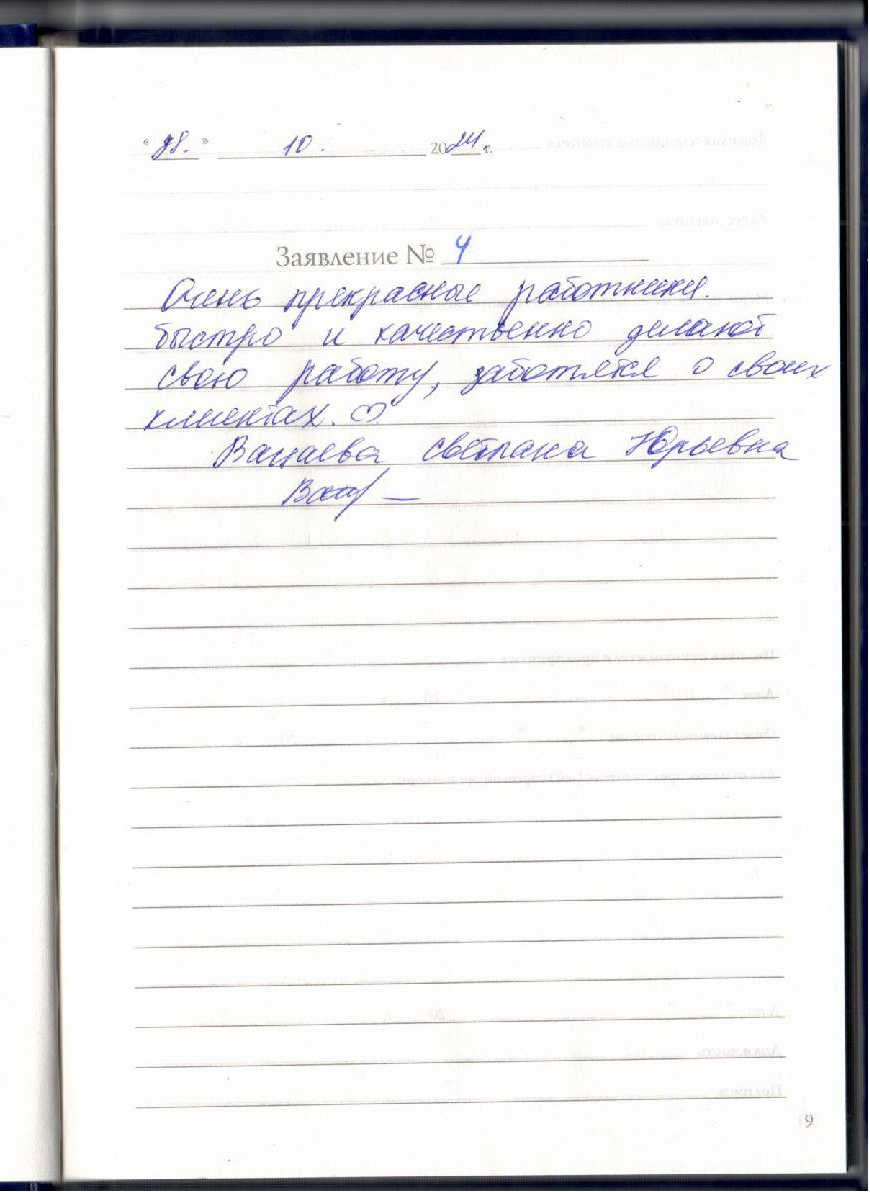 "28." 10. 2024 г.
Заявление № 4
Очень прекрасные работники.
быстро и качественно делают
свою работу, заботятся о своих
клиентах. ♡
Светлана Юрьевна
9